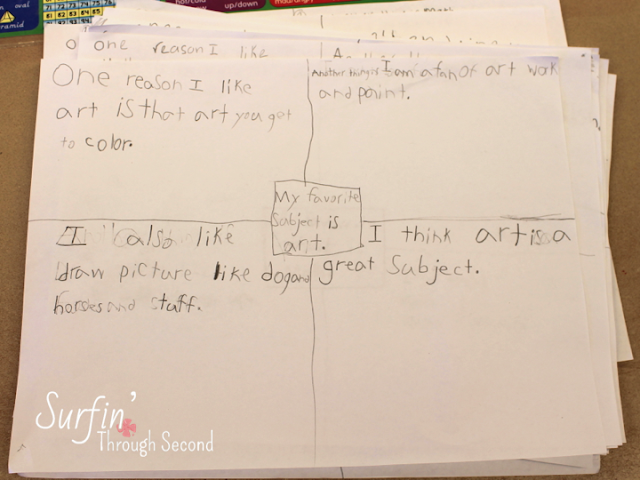 oral
hot/cold
up/down
E1 E2 E3 E4 E5
one reason I like
One reason I like
art is that art you get
to color.
Another thing is I am a fan of art work
and paint.
My favorite
Subject is
art.
I also like
draw picture like dog and
horses and stuff.
I think art is a
great Subject.
Surfin'
Through Second